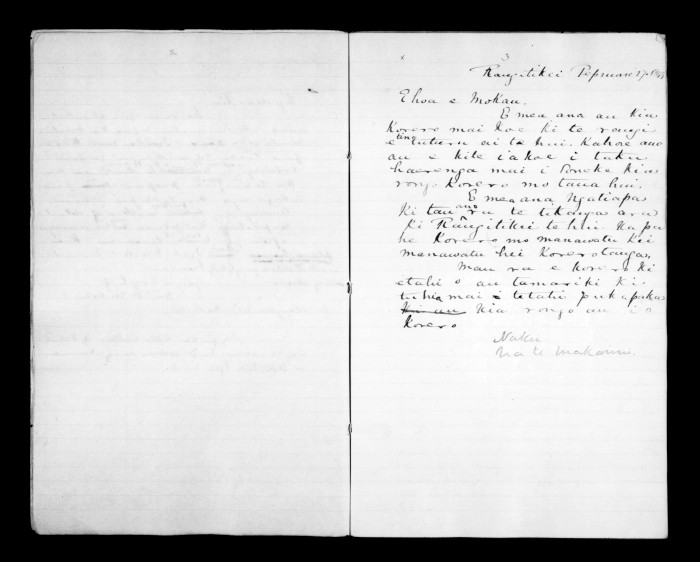 3
Rangitikei Pepuare 27
Ehoa e Mokau.
E mea ana au kia
Korero mai koe ki te rangi
e tino tuturu ai te hui. Kahore ano
au e kite iakoe i taku
haerenga mai i Poneke kia
rongo Korero mo taua hui.
E mea ana Ngatiapa
Ki tau ano ru te tikanga ara
ki Rangitikei te hui. Ka pu
he Korero mo manawatu kei
manawatu hei Korerotanga,
Mau ru e korero ki
etahi o au tamariki ki
tuhia mai i tetahi pukapuka
Ki au kia rongo au i o
Korero
Naku
Na te